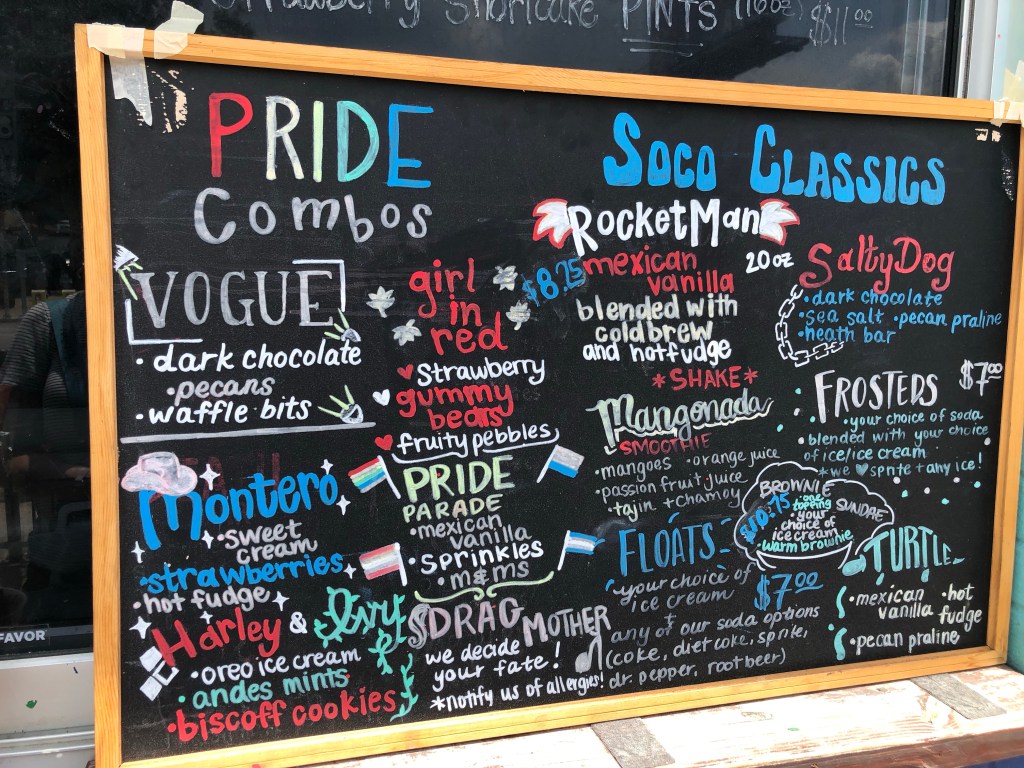 Strawberry Shortcake PINTS (16oz) $11.00
PRIDE
Combos
VOGUE
• dark chocolate
• pecans
• waffle bits
girl
in
red
Strawberry
gummy
bears
fruity pebbles
Montero
• sweet
cream
•strawberries
• hot fudge
PRIDE
PARADE
• mexican
vanilla
• Sprinkles
• m&ms
Harley & Ivy
• oreo ice cream
• andes mints
• biscoff cookies
DRAG MOTHER
we decide
your fate!
*notify us of allergies!
SOCO CLASSICS
ROCKETMAN
$8.25
mexican
vanilla
20 oz
blended with
cold brew
and hot fudge
*SHAKE*
Mangonada
SMOOTHIE
• mangoes • orange juice
• passion fruit juice
• tajin + chamoy
FLOATS
your choice of
ice cream
$7.00
+
any of our soda options
(coke, diet coke, sprite,
dr. pepper, root beer)
SALTY DOG
• dark chocolate
• sea salt • pecan praline
• heath bar
FROSTEDS
$7.00
• your choice of soda
blended with your choice
of ice/ice cream
*we ♥ sprite + any ice!
BROWNIE
SUNDAE
$10.75
one
topping
• your
choice of
ice cream
• warm brownie
TURTLE
• mexican
vanilla
• hot
fudge
• pecan praline
FAVOR